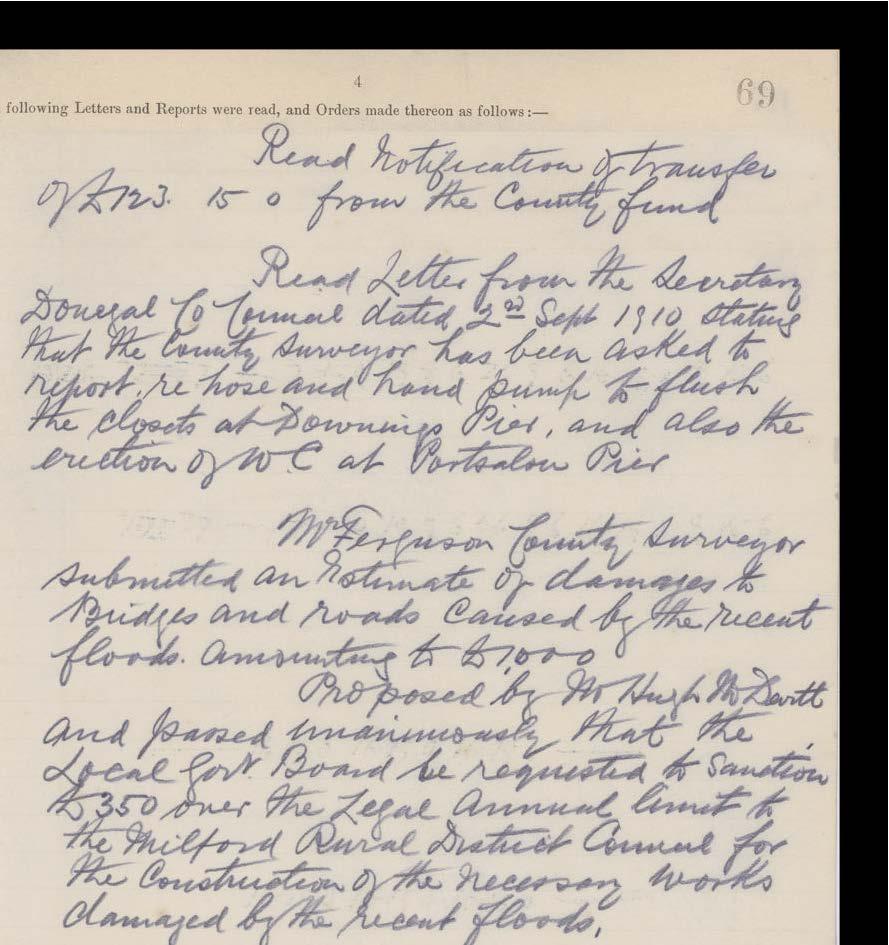 4
69
following Letters and Reports were read, and Orders made thereon as follows :—
Read Notification of transfer
of £123. 15 0 from the County fund
Read Letter from the Secretary
Donegal Co Council dated 2nd Sept 1910 stating
that the County Surveyor has been asked to
report, re hose and hand pump to flush
the closets at Downings Pier, and also the
erection of W C at Portsalon Pier
Mr Ferguson County Surveyor
submitted an Estimate of damages to
Bridges and roads caused by the recent
floods. amounting to £1,000
Proposed by Mr Hugh McDevitt
and passed unanimously that the
Local Govt Board be requested to Sanction
£350 over the Legal Annual limit to
the Milford Rural District Council for
the Construction of the necessary works
damaged by the recent floods.